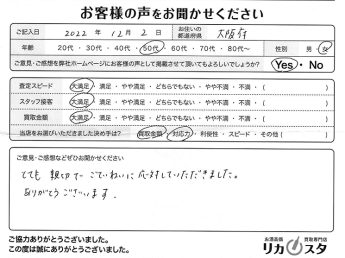 お客様の声をお聞かせください
ご記入日 2022年 12月 2日 お住いの都道府県 大阪府
年齢 20代・30代・40代・50代・60代・70代・80代〜 性別 男・女
ご意見・ご感想を弊社ホームページにお客様の声として掲載させて頂いてもよろしいでしょうか? Yes・No
査定スピード 大満足・満足・やや満足・どちらでもない・やや不満・不満・( )
スタッフ接客 大満足・満足・やや満足・どちらでもない・やや不満・不満・( )
買取金額 大満足・満足・やや満足・どちらでもない・やや不満・不満・( )
当店をお選びいただきました決め手は? 買取金額・対応力・利便性・スピード・その他( )
ご意見・ご感想などぜひお聞かせください
とても 親切で ていねいに 応対していただきました。
ありがとうございます.
ご協力ありがとうございました。
この度は誠にありがとうございました。
お酒高価 買取専門店
リカスタ